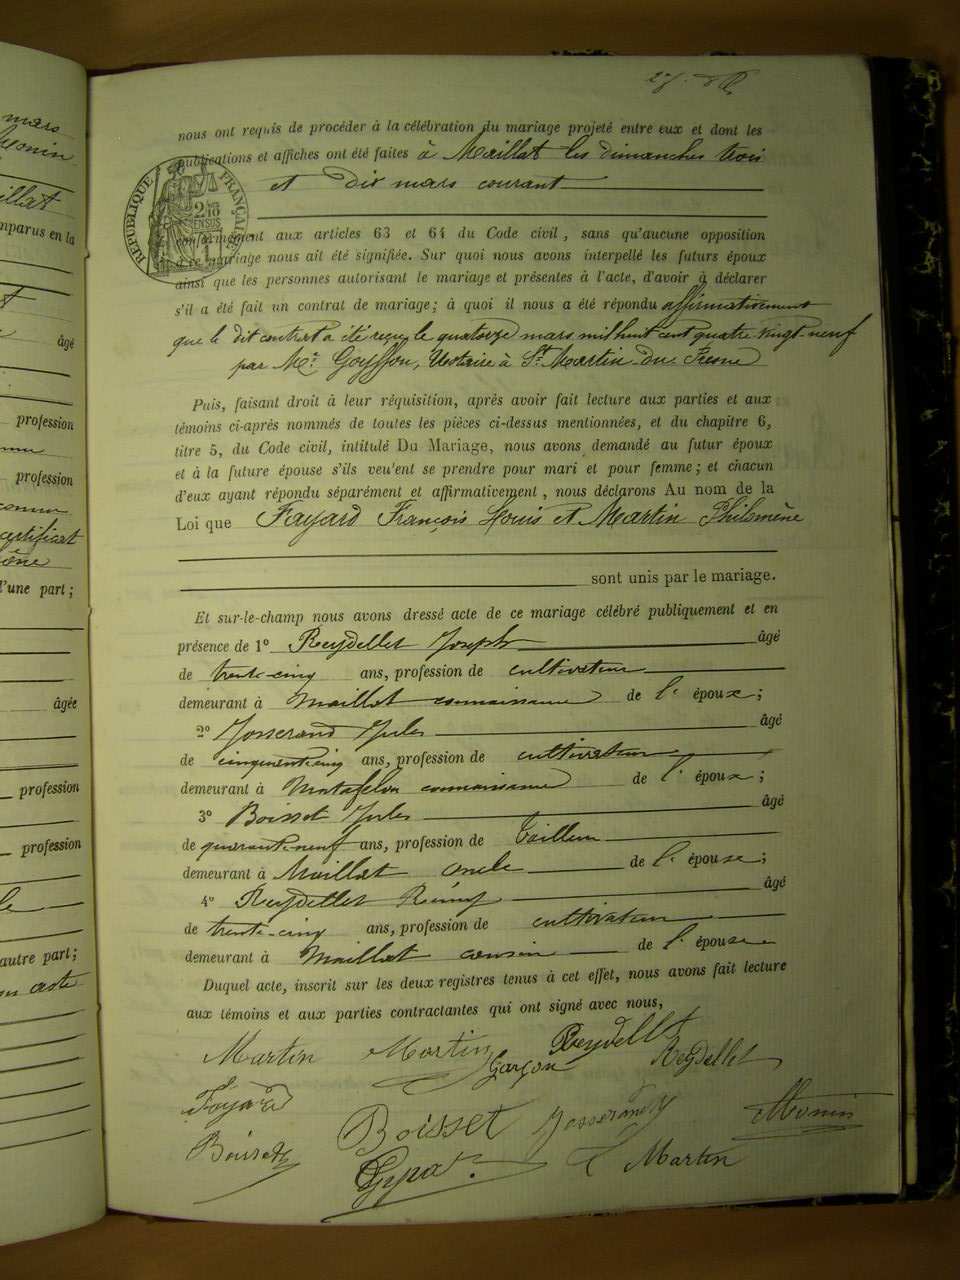 mars
Monin
Maillat
comparus en la
âgé
profession
profession
certificat
d'une part;
âgée
profession
profession
autre part;
acte
nous ont requis de procéder à la célébration du mariage projeté entre eux et dont les
publications et affiches ont été faites à Maillat les dimanches trois
et dix mars courant
RÉPUBLIQUE FRANÇAISE
conformément aux articles 63 et 64 du Code civil, sans qu'aucune opposition
à ce mariage nous ait été signifiée. Sur quoi nous avons interpellé les futurs époux
ainsi que les personnes autorisant le mariage et présentes à l'acte, d'avoir à déclarer
s'il a été fait un contrat de mariage; à quoi il nous a été répondu affirmativement
que le dit contrat a été reçu le quatorze mars mil huit cent quatre vingt-neuf
par Me Goyffon, Notaire à St Martin-du-Fresne
Puis, faisant droit à leur réquisition, après avoir fait lecture aux parties et aux
témoins ci-après nommés de toutes les pièces ci-dessus mentionnées, et du chapitre 6,
titre 5, du Code civil, intitulé Du Mariage, nous avons demandé au futur époux
et à la future épouse s'ils veulent se prendre pour mari et pour femme; et chacun
d'eux ayant répondu séparément et affirmativement, nous déclarons Au nom de la
Loi que Fayard François Louis et Martin Philomène
sont unis par le mariage.
Et sur-le-champ nous avons dressé acte de ce mariage célébré publiquement et en
présence de 1° Reydellet Joseph âgé
de trente-cinq ans, profession de cultivateur
demeurant à Maillat connaissance de l'époux;
2° Josserand Jules âgé
de cinquante cinq ans, profession de cultivateur
demeurant à Matafelon connaissance de l'époux;
3° Boisset Jules âgé
de quarante-neuf ans, profession de Tailleur
demeurant à Maillat oncle de l'épouse;
4° Reydellet Rémy âgé
de trente-cinq ans, profession de cultivateur
demeurant à Maillat cousin de l'épouse
Duquel acte, inscrit sur les deux registres tenus à cet effet, nous avons fait lecture
aux témoins et aux parties contractantes qui ont signé avec nous,
Martin Martin Garçon Reydellet Reydellet
Fayard Boisset Josserand Monin
Boisset Martin